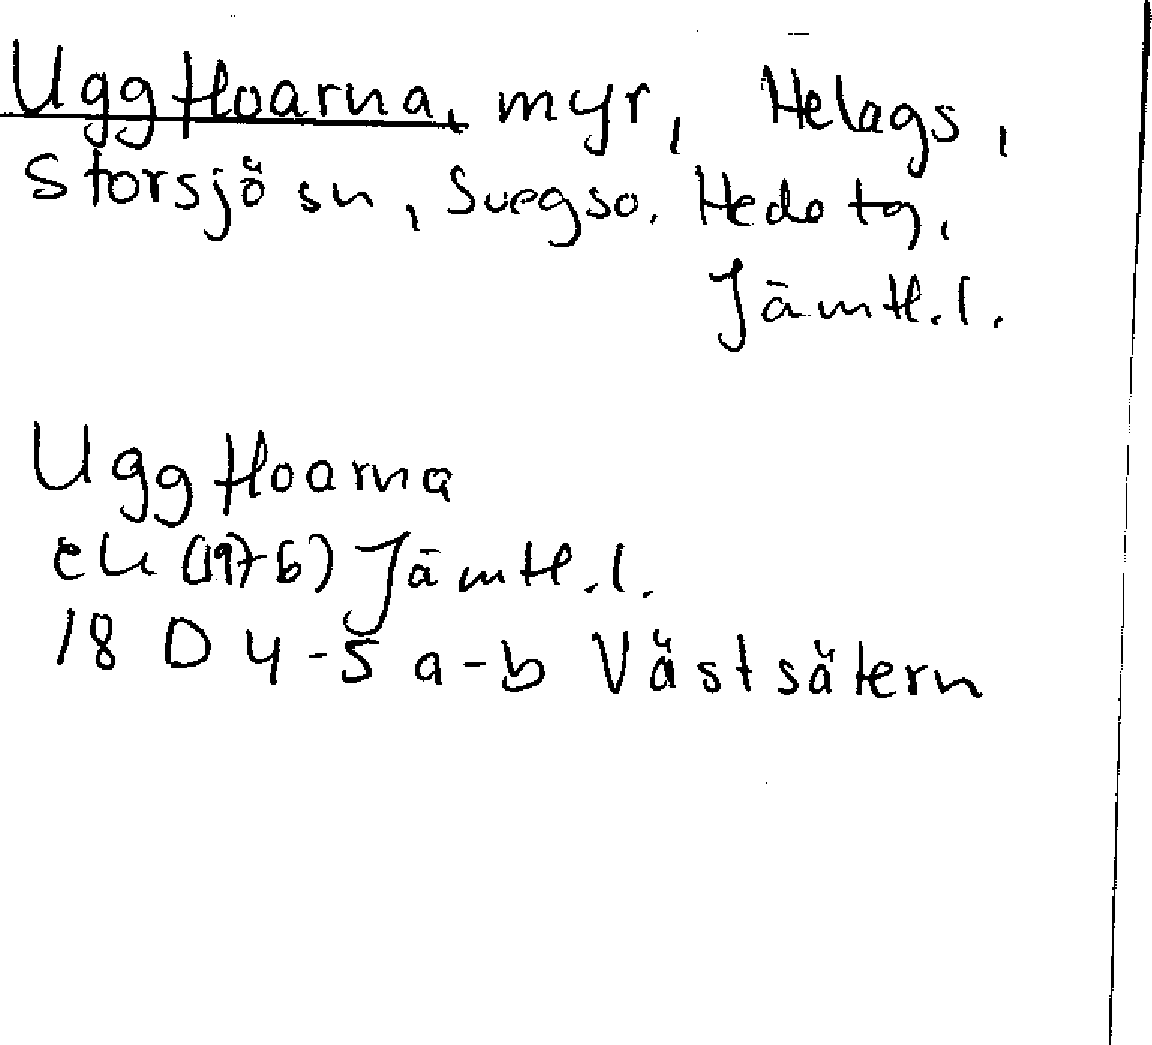 Uggfloarna, myr, Helags,
Storsjö sn, Svegs o. Hede tg,
Jämtl. l.
Uggfloarna
ek (1976) Jämtl. l.
18 D 4-5 a-b Västsätern